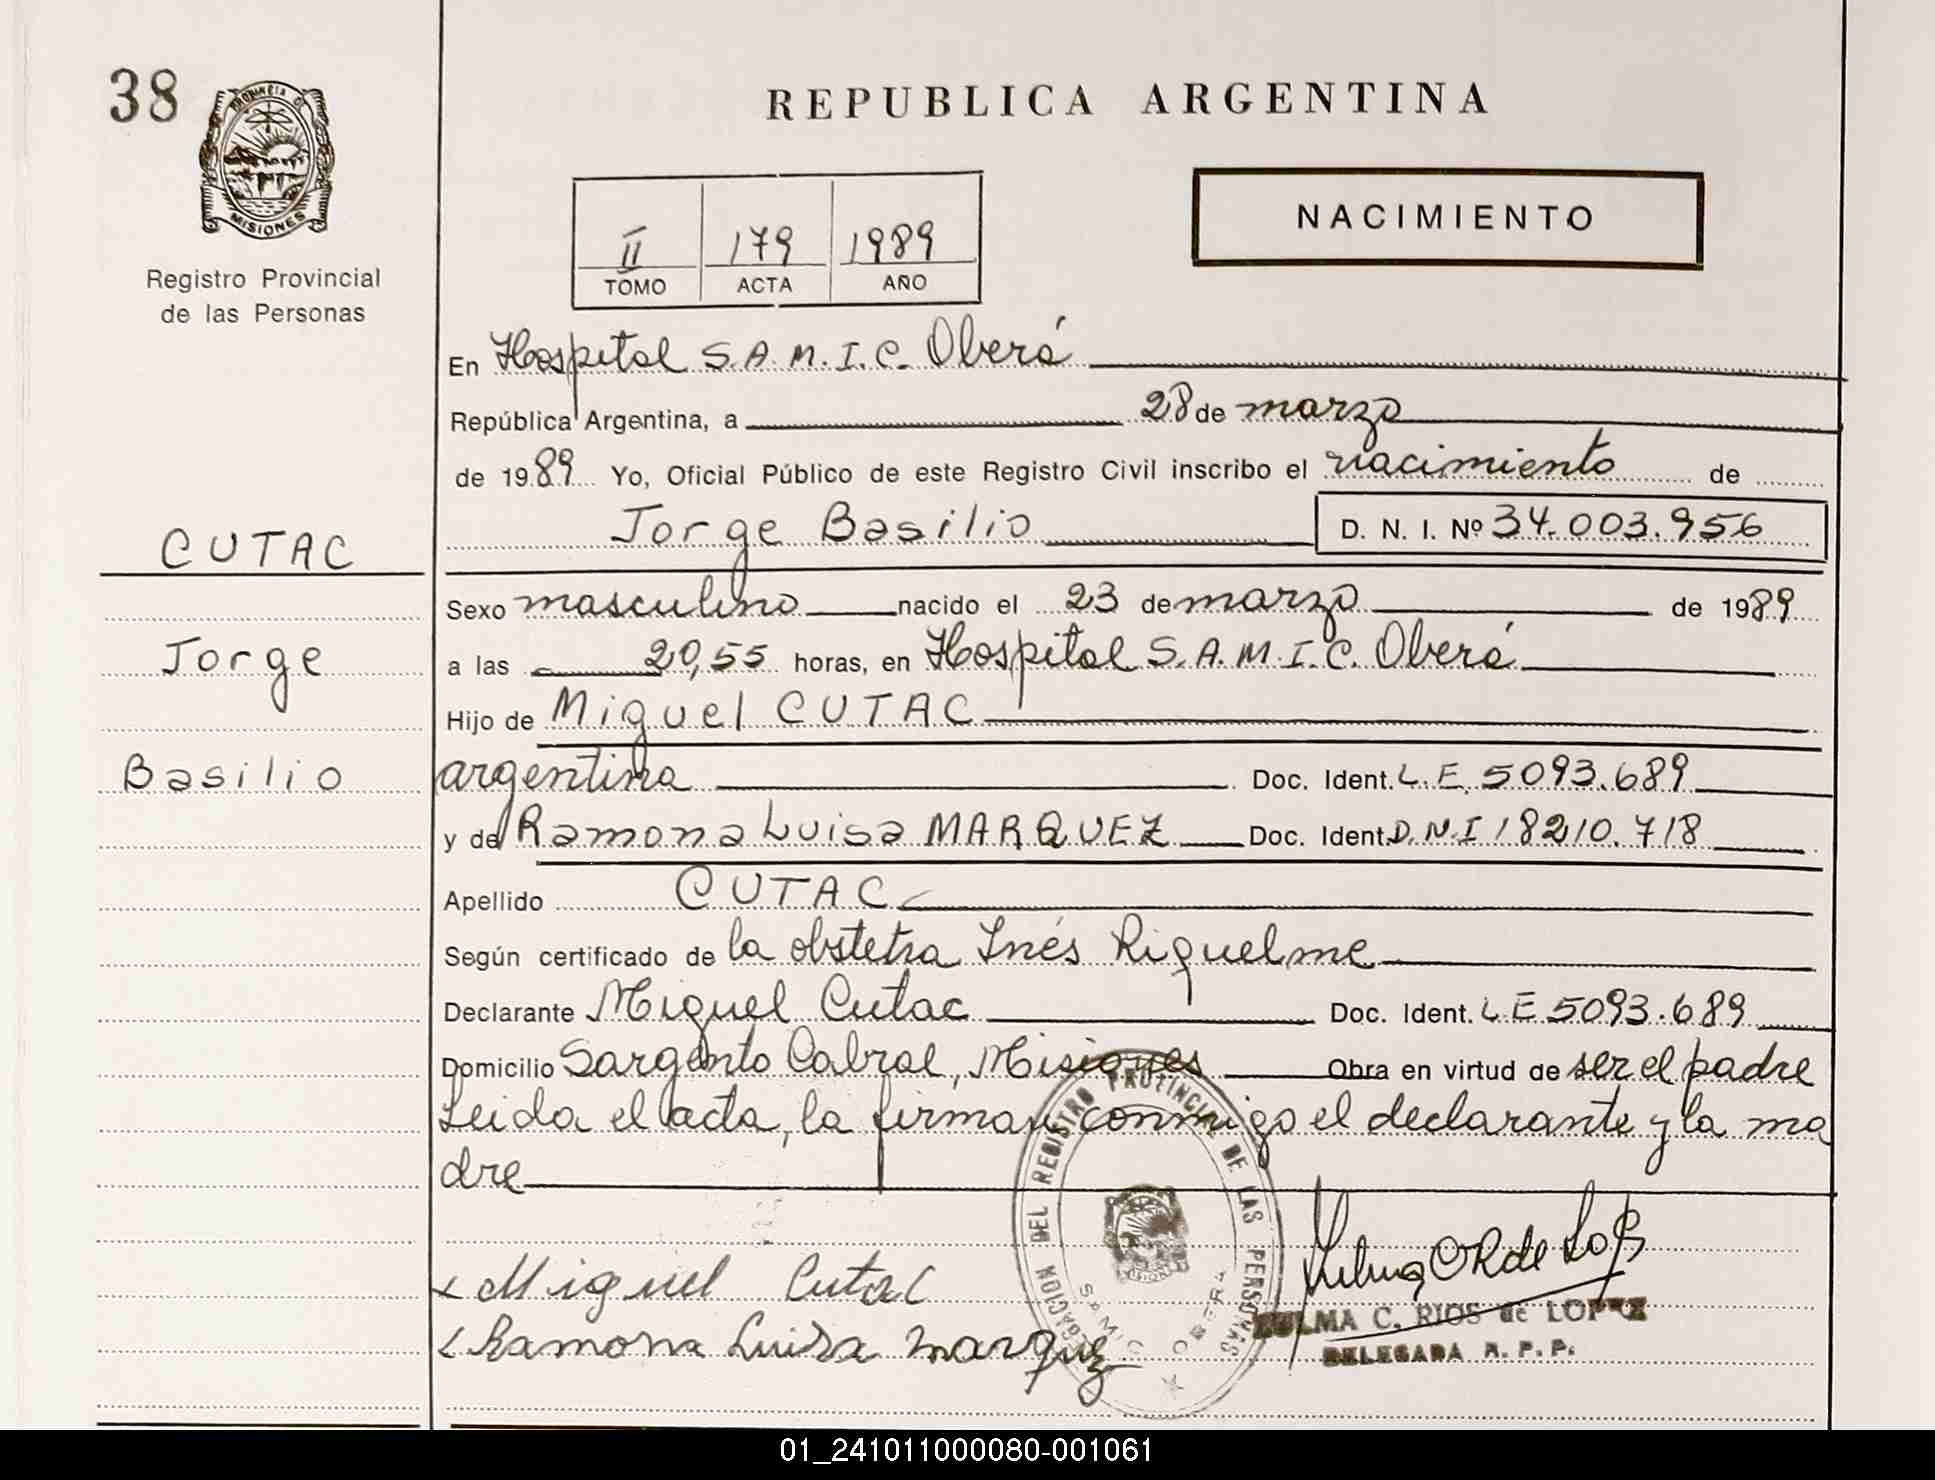 38
REPUBLICA ARGENTINA
PROVINCIA DE
MISIONES
Registro Provincial
de las Personas
NACIMIENTO
II 179 1989
TOMO ACTA AÑO
En Hospital S.A.M.I.C. Oberá
República Argentina, a 28 de marzo
de 1989 Yo, Oficial Público de este Registro Civil inscribo el nacimiento de
Jorge Basilio D. N. I. Nº 34.003.956
CUTAC
Sexo masculino nacido el 23 de marzo de 1989
Jorge
a las 20,55 horas, en Hospital S.A.M.I.C. Oberá
Hijo de Miguel CUTAC
Basilio
argentina Doc. Ident. L.E. 5093.689
y de Ramona Luisa MARQUEZ Doc. Ident. D.N.I 18210.718
Apellido CUTAC
Según certificado de la obstetra Inés Riquelme
Declarante Miguel Cutac Doc. Ident. LE 5093.689
Domicilio Sargento Cabral, Misiones Obra en virtud de ser el padre
Leida el acta, la firman conmigo el declarante y la ma
dre
Miguel Cutac
Ramona Luisa Marquez
DELEGACION DEL REGISTRO PROVINCIAL DE LAS PERSONAS
OBERA
ZULMA C. RIOS de LOPEZ
DELEGADA R. P. P.
01_241011000080-001061